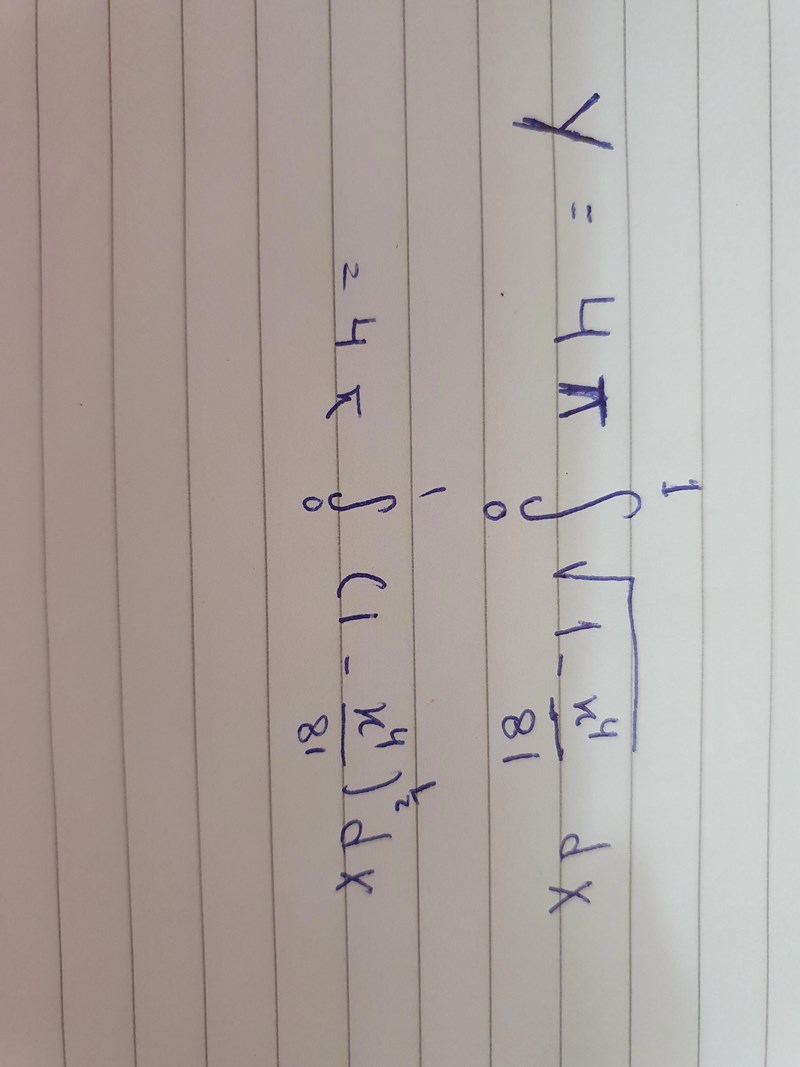 Y = 4π ∫₀¹ √(1 - x⁴/81) dx
= 4π ∫₀¹ (1 - x⁴/81)^½ dx